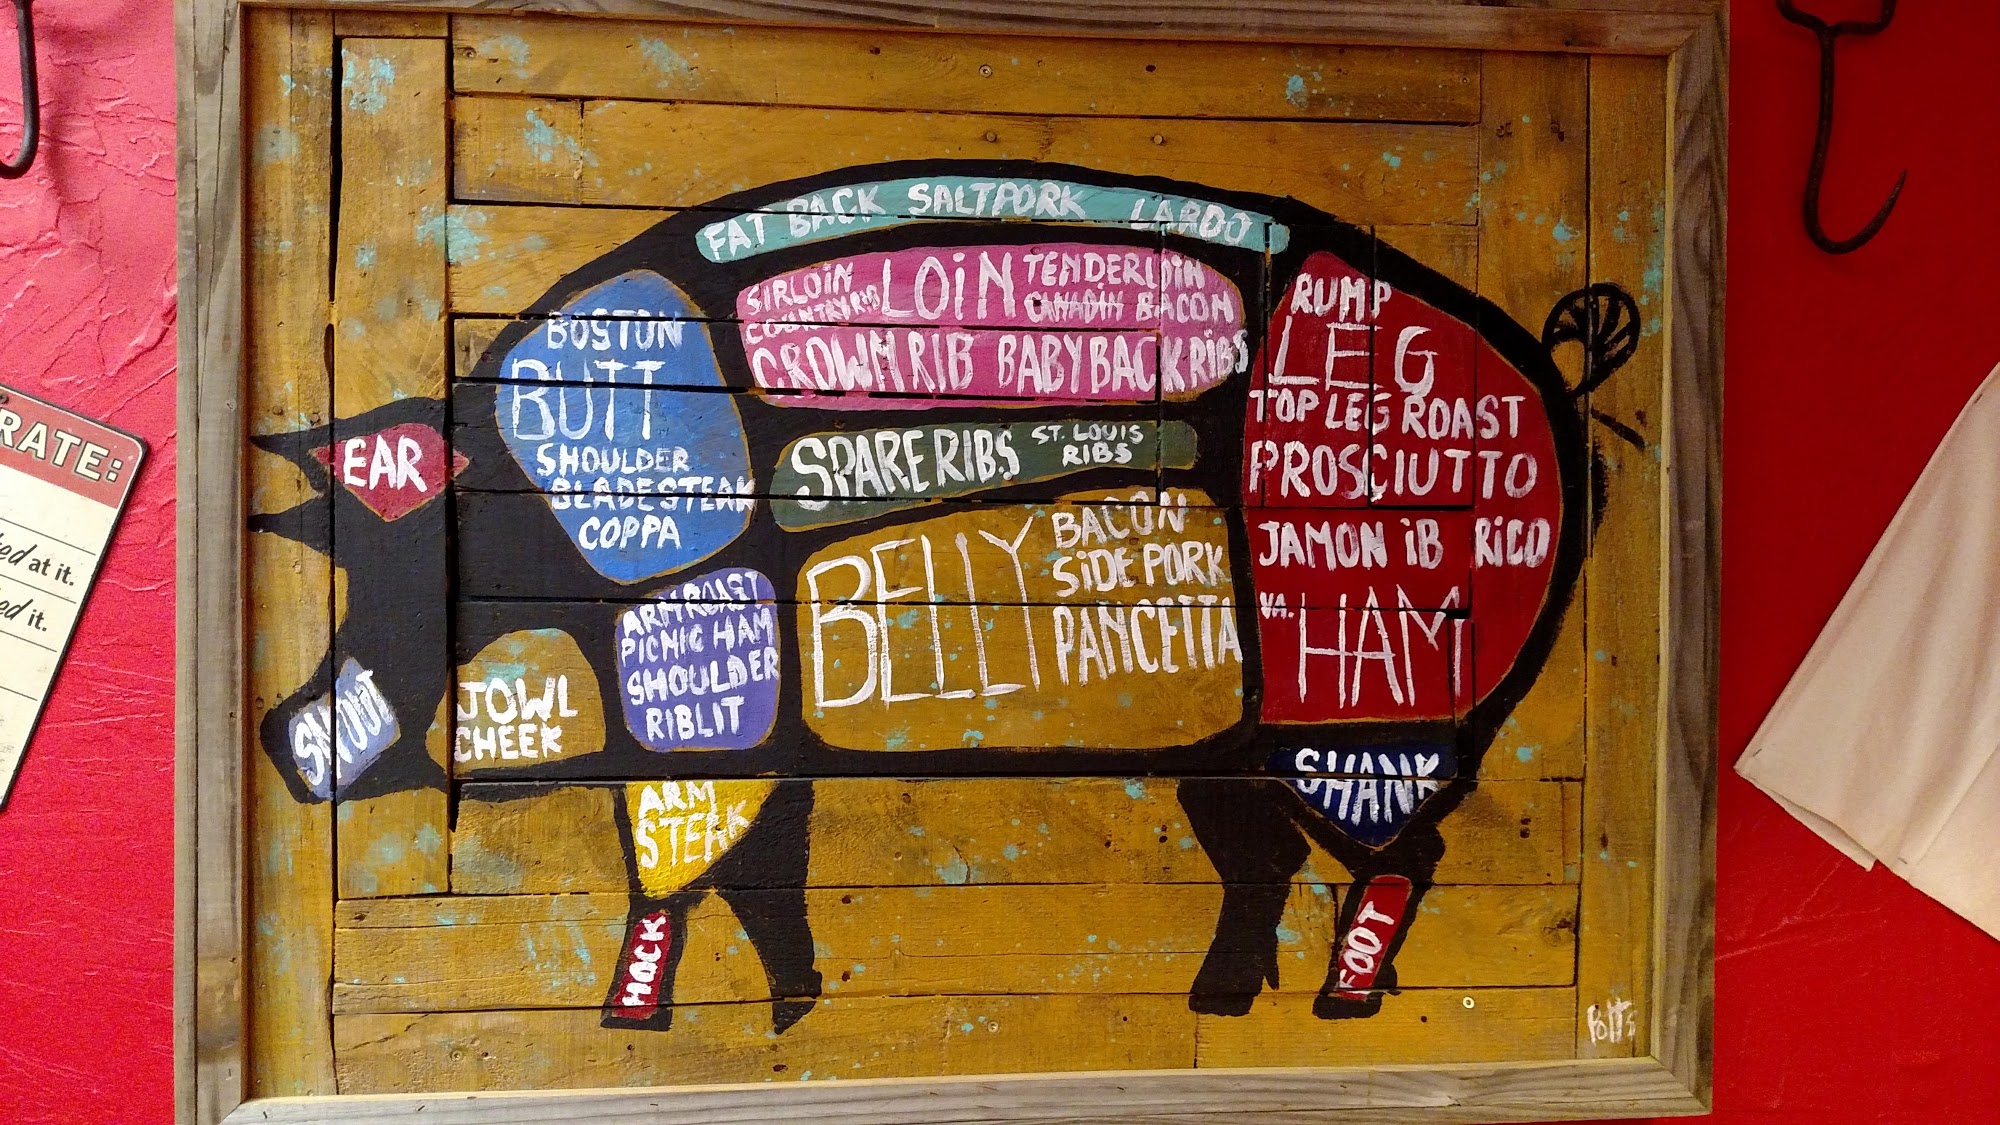 FAT BACK SALTPORK LARDO
SIRLOIN
COUNTRY RIB
LOIN
TENDERLOIN
CANADIAN BACON
CROWN RIB BABY BACK RIBS
BOSTON
BUTT
SHOULDER
BLADE STEAK
COPPA
SPARE RIBS
ST. LOUIS
RIBS
RUMP
LEG
TOP LEG ROAST
PROSCIUTTO
JAMON IBRICO
VA. HAM
EAR
BELLY
BACON
SIDE PORK
PANCETTA
ARM ROAST
PICNIC HAM
SHOULDER
RIBLIT
SNOUT
JOWL
CHEEK
ARM
STEAK
SHANK
HOCK
FOOT
Potts
RATE:
at it.
it.